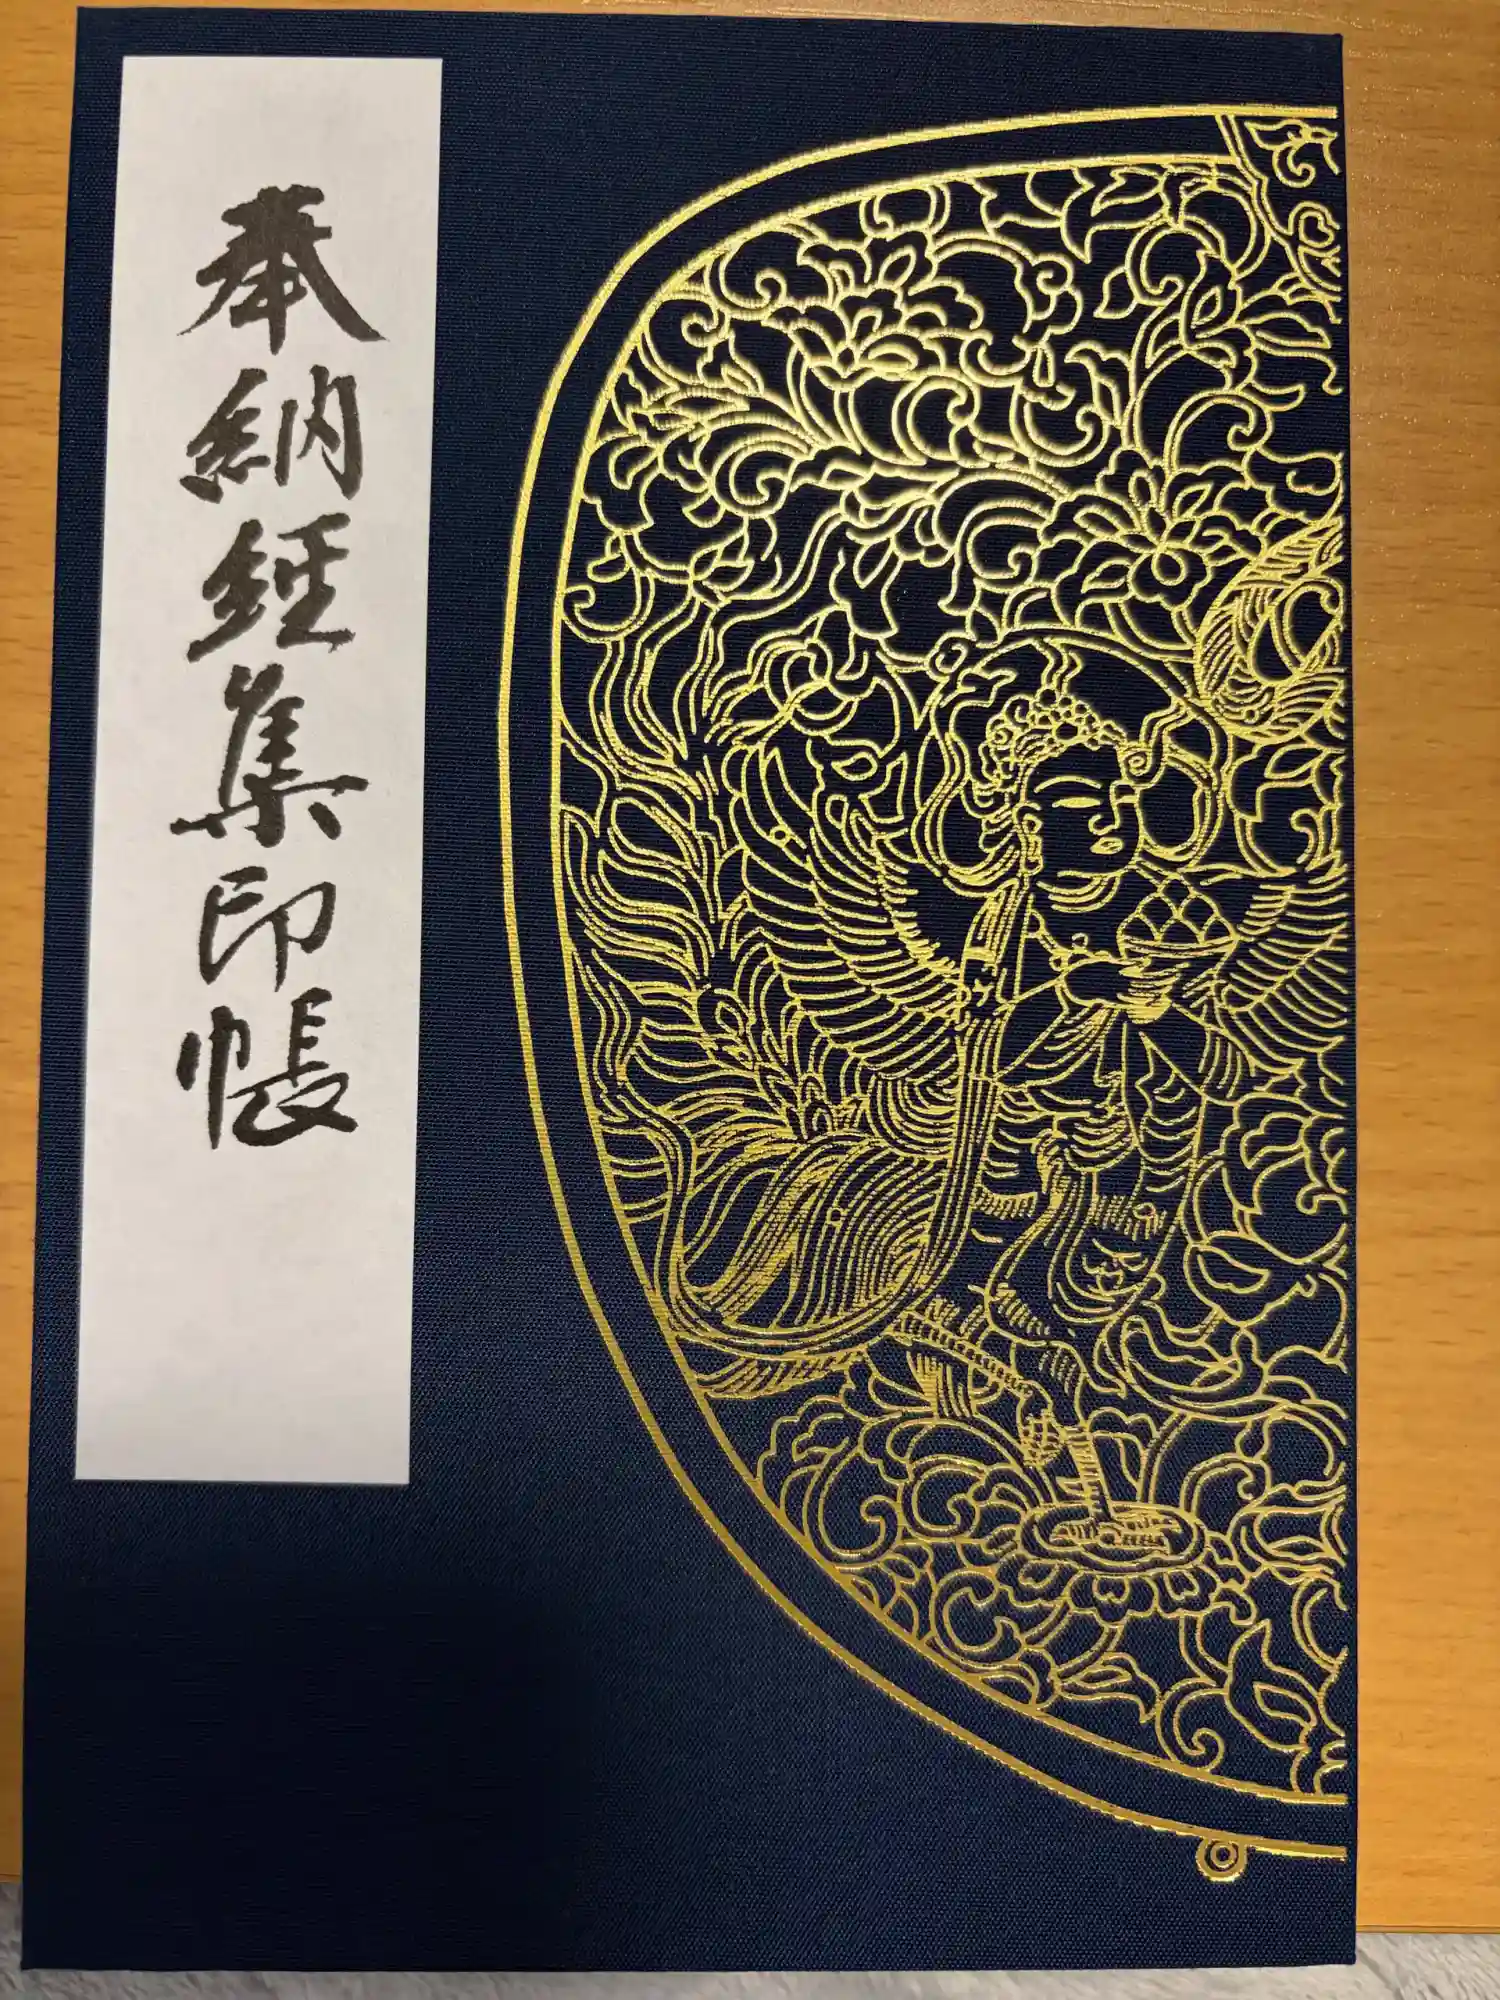 奉納経集印帳